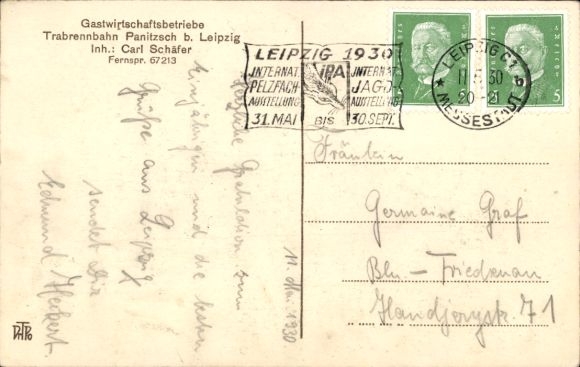 Gastwirtschaftsbetriebe
Trabrennbahn Panitzsch b. Leipzig
Inh.: Carl Schäfer
Fernspr. 67213
LEIPZIG 1930
INTERNAT. PELZFACH AUSSTELLUNG
31. MAI
IPA
BIS
INTERNAT. JAGD AUSSTELLUNG
30. SEPT.
LEIPZIG C2
11.5.30
20
MESSESTADT
5
Herzliche Gratulation zum
Einjährigen und die besten
Grüße aus Leipzig
sendet Dir
Edmund Herbert.
11. Mai 1930
Fräulein
Germaine Graf
Bln – Friedenau
Handjerystr. 71